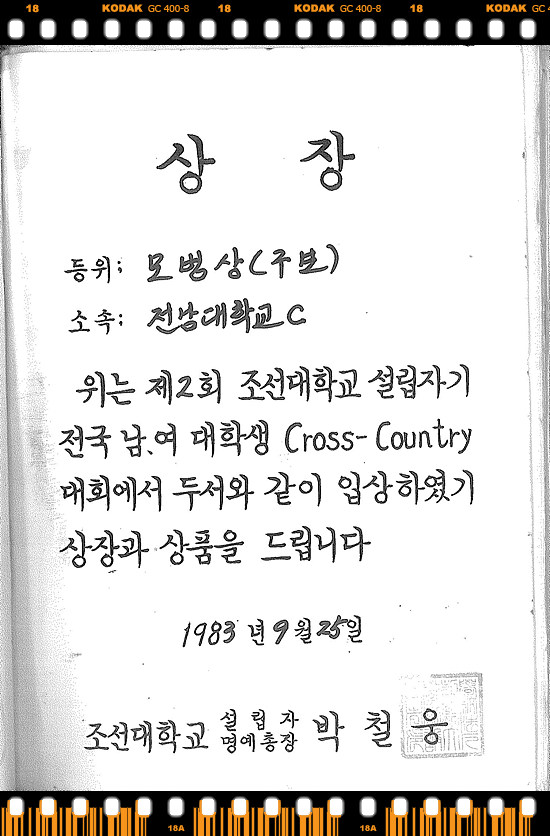 18 KODAK GC 400-8 18 KODAK GC 400-8 18 KODAK GC 4
상 장
등위: 모범상(구보)
소속: 전남대학교 C
위는 제2회 조선대학교 설립자기
전국 남.여 대학생 Cross-Country
대회에서 두서와 같이 입상하였기
상장과 상품을 드립니다
1983 년 9 월 25일
조선대학교 설립자 명예총장 박 철 웅
18A 18A